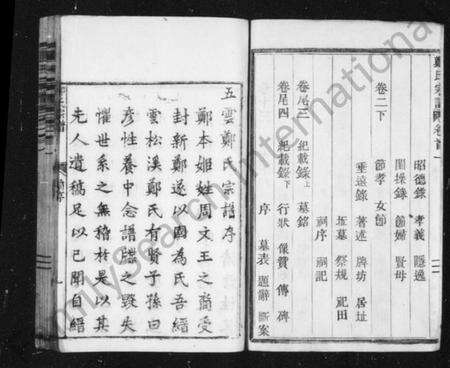 鄭氏宗譜 卷首
昭德錄 孝義 隱逸
閨操錄 節婦 賢母
節孝 女節
卷二下
垂遠錄 著述 牌坊 居址
坵墓 祭規 祀田
祠序 祠記
卷尾三 紀載錄上 墓銘
卷尾四 紀載錄下 行狀 像贊 傳 碑
序 墓表 題辭 斷案
五雲鄭氏宗譜序
鄭本姬姓周文王之裔受
封新鄭遂以國為氏吾縉
雲松溪鄭氏有賢子孫曰
彥性養中念譜牒之毀失
懼世系之無稽於是以其
先人遺稿足以已聞自縉
FamilySearch International